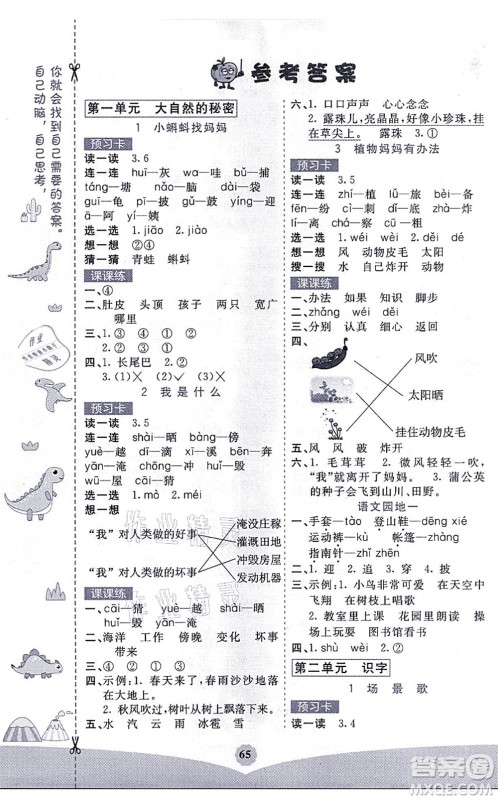 参考答案
你就会找到自己需要的答案。
自己动脑，自己思考，
第一单元 大自然的秘密
1 小蝌蚪找妈妈
预习卡
读一读 3.6
连一连 huī—灰 wa—哇 bǔ—捕
táng—塘 nǎo—脑 dài—袋
yuè—跃 chún—唇 pī—披
ā—阿 yí—姨
选一选 1.jiào 2.jiāo
想一想 ②④
猜一猜 青蛙 蝌蚪
课课练
一、④
二、肚皮 头顶 孩子 两只 宽广
哪里
三、1.③ ④ ① ②
2.②③①④
四、1.长尾巴 2.②
3.(1)✓ (2)✓ (3)✗
2 我是什么
预习卡
读一读 3.5
连一连 shài—晒 bàng—傍
cāi—猜 yuè—越 bēn—奔
yān—淹 chōng—冲 huǐ—毁
wū—屋
选一选 1.没 2.还
想一想 ②④③①
连一连
“我”对人类做的好事
“我”对人类做的坏事
淹没庄稼
灌溉田地
冲毁房屋
发动机器
课课练
一、cāi—猜 yuè—越 shài—晒
huǐ—毁 yān—淹
二、海洋 工作 傍晚 变化 坏事
带来
三、④③②①
四、示例：1.春天来了，春雨沙沙地
落着。
2.秋风吹过，树叶轻轻地飘着。
五、水 汽 云 雨 冰雹 雪
六、1.口口声声 心心念念
2.露珠儿，亮晶晶，好像小珍珠，挂
在草尖上。 露珠 3.①
3 植物妈妈有办法
预习卡
读一读 3.5
连一连 zhí—植 lǚ—旅 bèi—备
fēn—纷 shí—识 zhà—炸
lí—离 chá—察 cū—粗
选一选 1.wéi wèi 2.děi dé
想一想 风 动物皮毛 太阳
搜一搜 水 自己炸开 动物
课课练
一、办法 如果 知识 脚步
二、zhǎng wéi dé
三、分别 认真 细心 返回
四、
风吹
太阳晒
挂住动物皮毛
五、风 风 破 炸开
六、1.毛茸茸 2.微风轻轻一吹，
“我”就离开了妈妈。 3.蒲公英
的种子会飞到山川、田野。
语文园地一
一、手套—tào 登山鞋—dēng
运动服—kù 帐篷—zhàng
指南针—zhǐ zhēn
二、1.迎 2.追 穿 3.逃
三、示例：1.小鸟非常可爱 在天空中
飞翔 在树枝上唱歌
2.教室里上课 花园里朗读 操
场上玩乐 图书馆看书
四、1.水 妈 2.②
第二单元 识字
1 场景歌
预习卡
读一读 3.4
65
答案圈